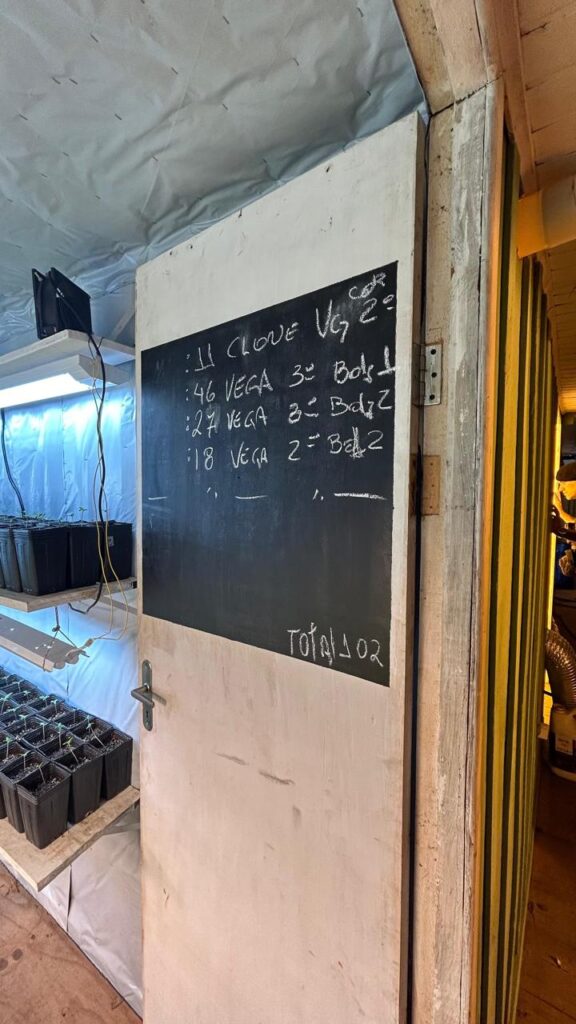 COR
: 11 CLONE VG 2º
: 46 VEGA 3º Bds 1
: 27 VEGA 3º Bds 2
: 18 VEGA 2º Bds 2
TOTAL 102